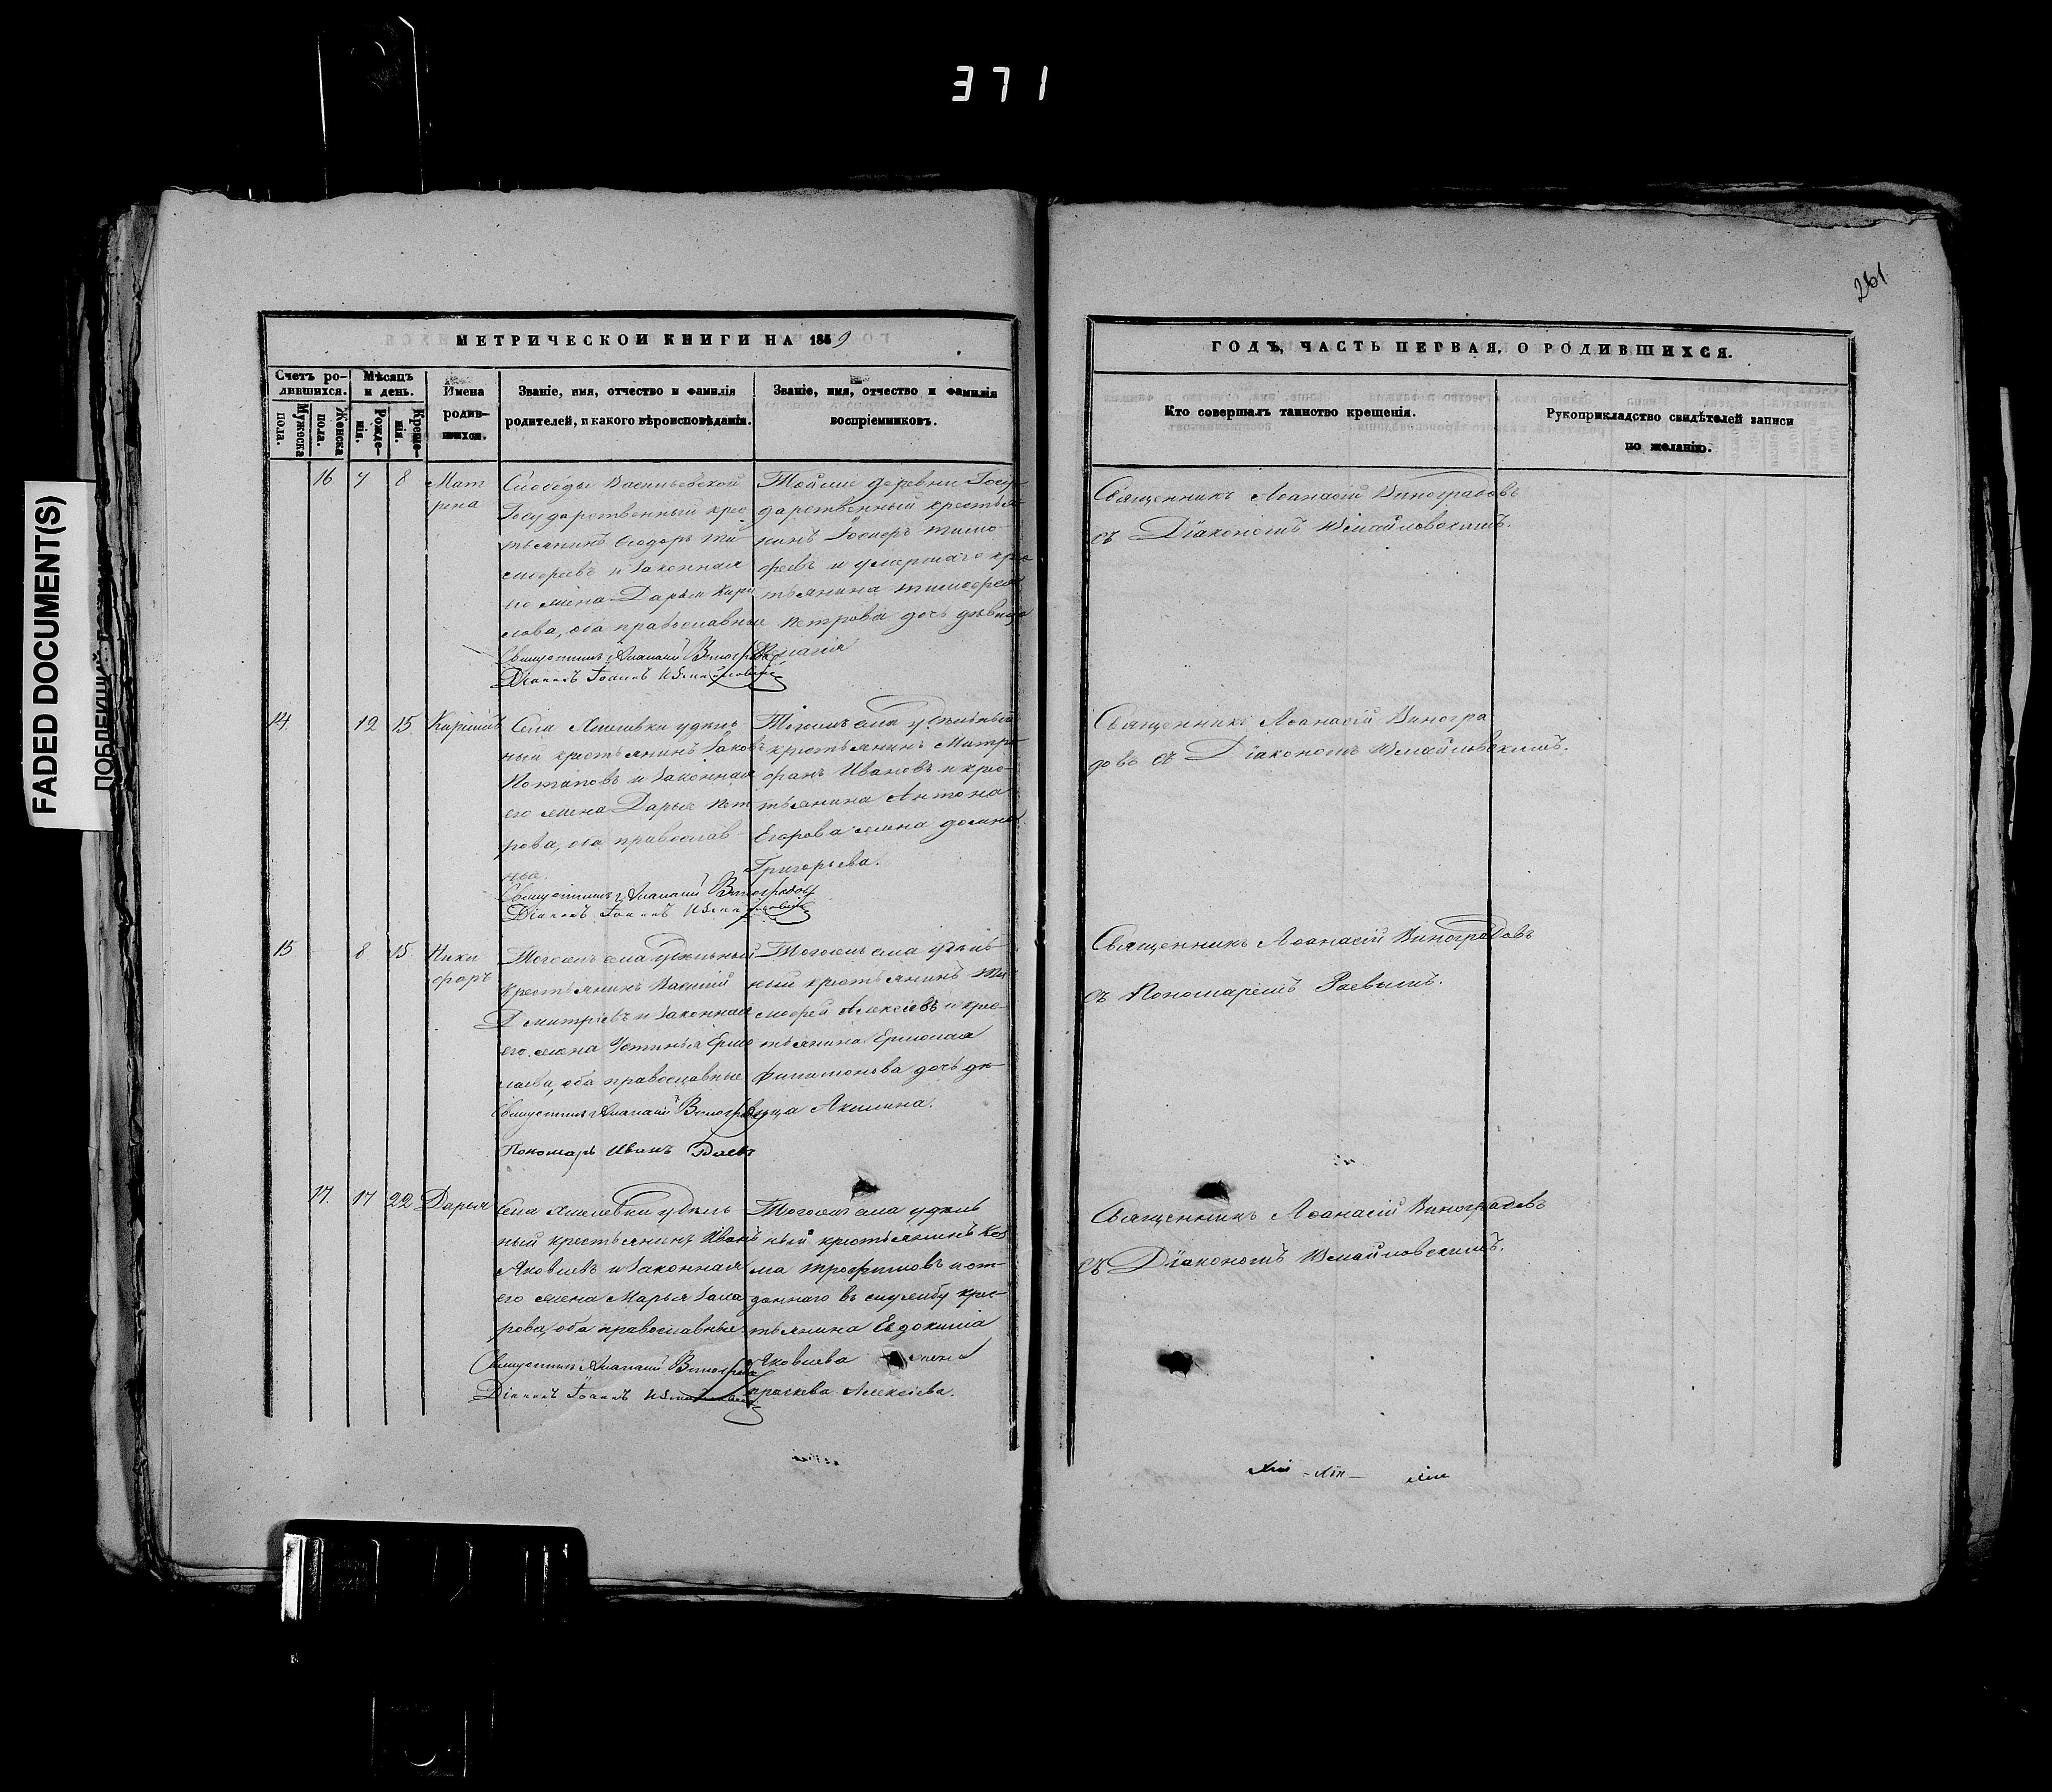 371
261
FADED DOCUMENT(S)
МЕТРИЧЕСКОИ КНИГИ НА 1859
Счетъ ро-
дившихся.
Мужеска
пола.
Женска
пола.
Мѣсяцъ
и день.
Рожде-
нія.
Креще-
нія.
Имена
родив-
шихся.
Званіе, имя, отчество и фамилія
родителей, и какого вѣроисповѣданія.
Званіе, имя, отчество и фамилія
воспріемниковъ.
16 7 8 Мат
рена
Слободы Васильевской
Государственный крес
тьянинъ Ѳеодоръ Ти
моѳеевъ и законная
его жена Дарья Кири
лова, оба православные
Священникъ Аѳанасій Виноградовъ
Діаконъ Іоаннъ Измайловскій
Тойже деревни Госу-
дарственный крестья
нинъ Тимо-
феевъ и умершаго крес
тьянина Тимоѳея
Петрова дочь дѣвица
14. 12 15. Кириллъ
Села удѣль-
ный крестьянинъ Яковъ
Потаповъ и законная
его жена Дарья Пет
рова, оба православ
ные.
Священникъ Аѳанасій Виноградовъ
Діаконъ Іоаннъ Измайловскій
Тогожъ села удѣльный
крестьянинъ Митро
фанъ Ивановъ и крес-
тьянина Антона
Егорова жена Домна
Григорьева.
15 8 15. Ники
форъ
Тогожъ села удѣльный
крестьянинъ Василій
Дмитріевъ и законная
его жена Устинья Ермо
лаева, оба православные
Священникъ Аѳанасій Виноградовъ
Пономарь Иванъ Раевъ
Тогожъ села удѣль-
ный крестьянинъ Ти
моѳей Алексѣевъ и крес-
тьянина Ермолая
Филимонова дочь дѣ-
вица Акилина.
17. 17 22 Дарья
Села удѣль
ный крестьянинъ Иванъ
Яковлевъ и законная
его жена Марья Заха
рова, оба православные
Священникъ Аѳанасій Виноградовъ
Діаконъ Іоаннъ Измайловскій
Тогожъ села удѣль
ный крестьянинъ Коз
ма Трофимовъ и от-
даннаго въ службу крес-
тьянина Евдокима
Яковлева жена
Алексѣева.
ГОДЪ, ЧАСТЬ ПЕРВАЯ, О РОДИВШИХСЯ.
Кто совершалъ таинство крещенія.
Рукоприкладство свидѣтелей записи
по желанію.
Священникъ Аѳанасій Виноградовъ
съ Діакономъ Измайловскимъ.
Священникъ Аѳанасій Виногра
довъ съ Діакономъ Измайловскимъ.
Священникъ Аѳанасій Виноградовъ
съ Пономаремъ Раевымъ.
Священникъ Аѳанасій Виноградовъ
съ Діакономъ Измайловскимъ.